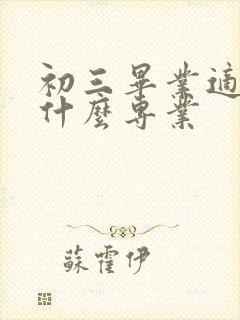 初三畢業適
什麼專業
蘇霍伊